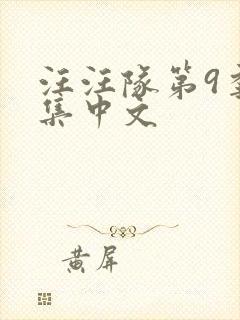 汪汪队第9季
集中文
黄屏